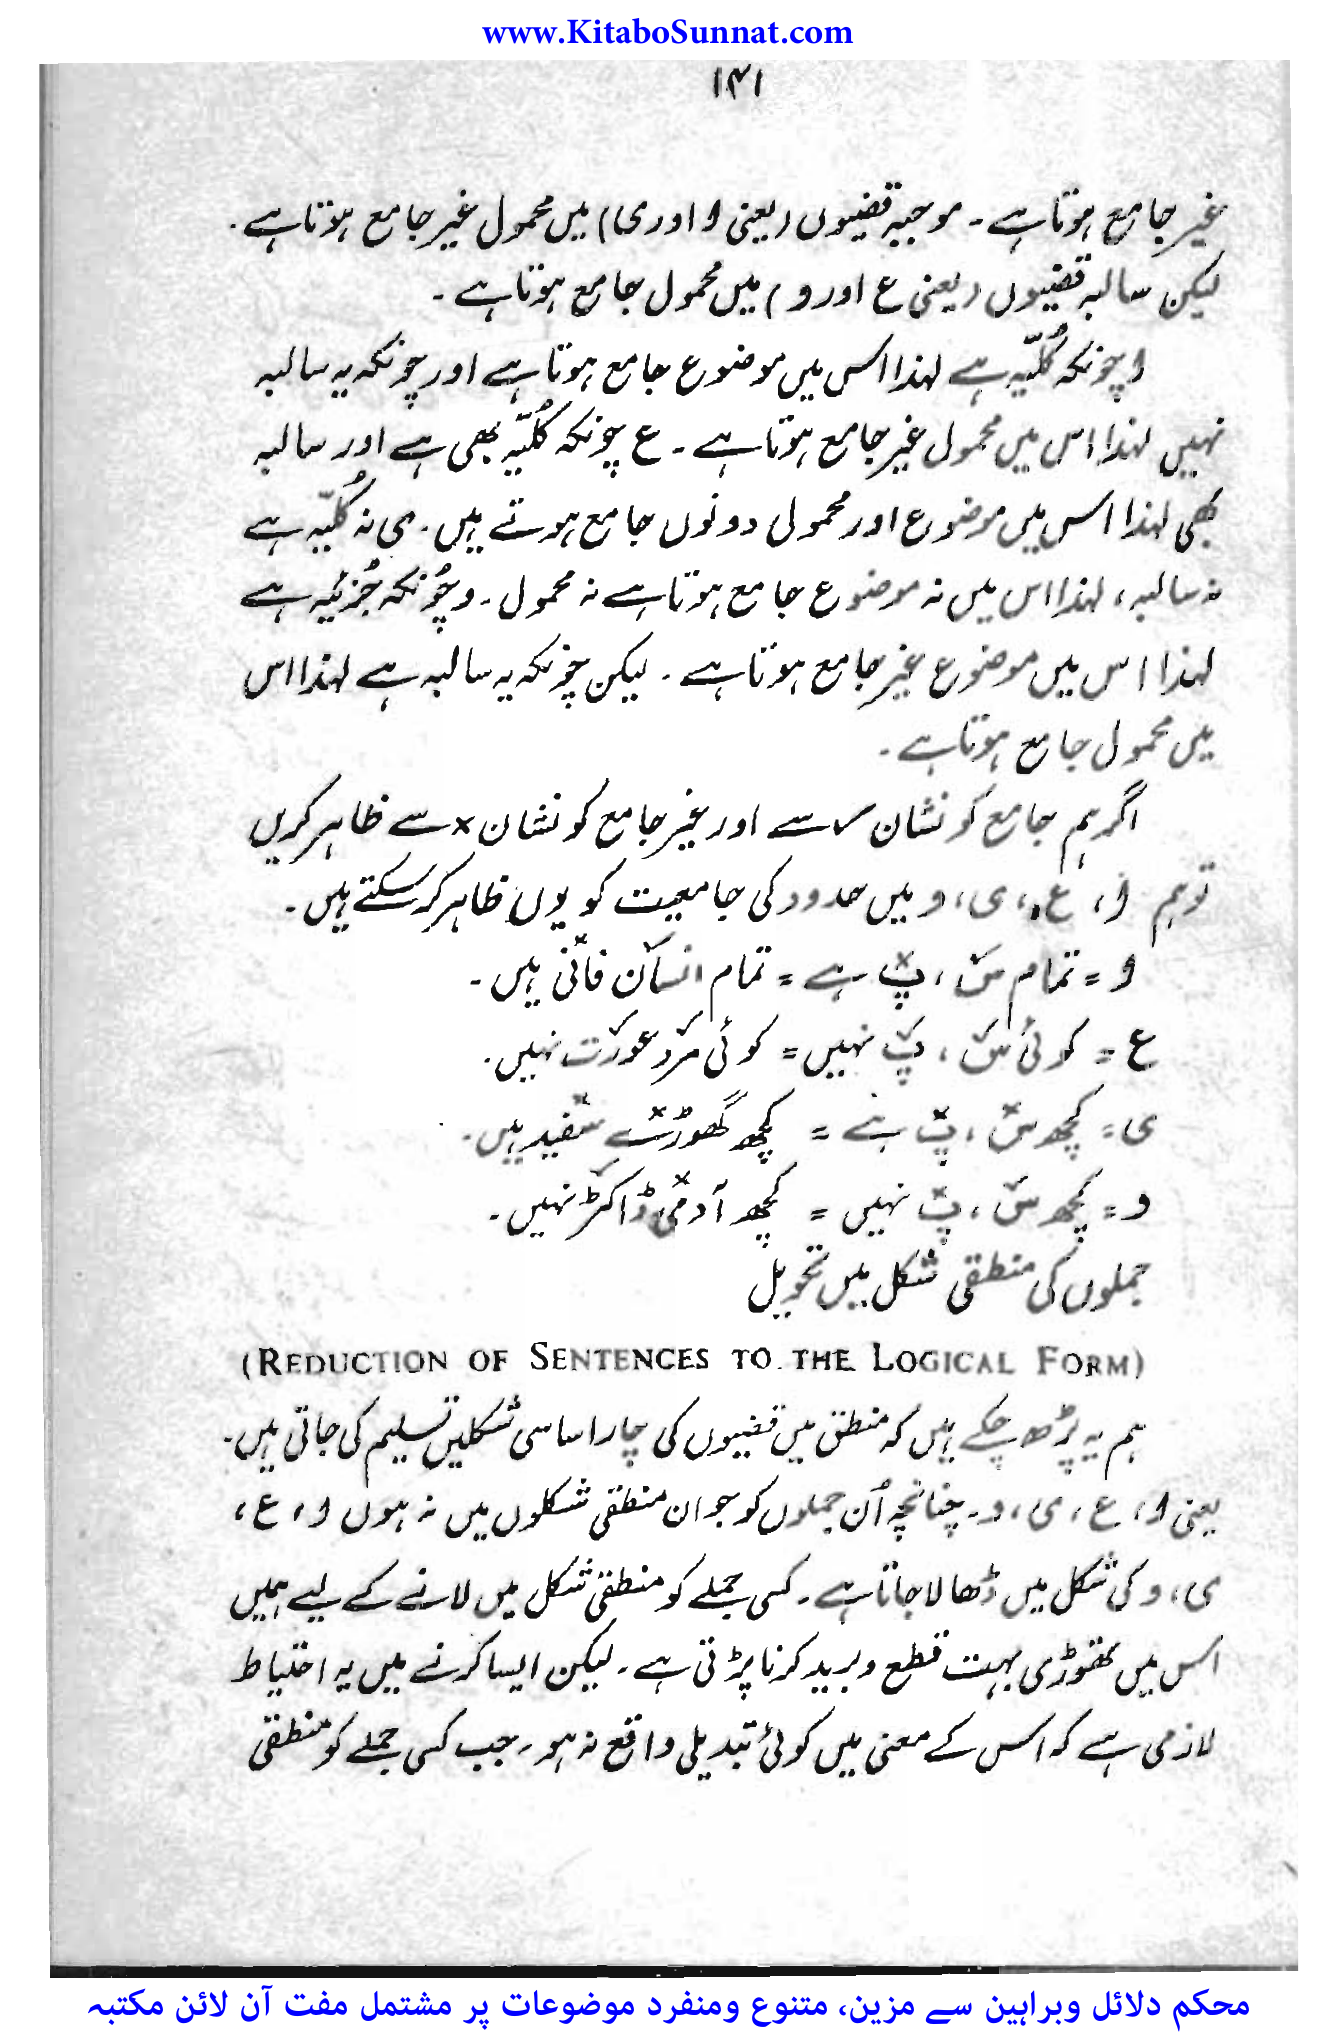 www.KitaboSunnat.com
۱۴۱
غیر جامع ہوتا ہے۔ موجبہ قضیوں (یعنی ا اور ی) میں محمول غیر جامع ہوتا ہے۔
لیکن سالبہ قضیوں (یعنی ع اور و) میں محمول جامع ہوتا ہے۔
ا چونکہ کُلیّہ ہے لہٰذا اس میں موضوع جامع ہوتا ہے اور چونکہ یہ سالبہ
نہیں لہٰذا اس میں محمول غیر جامع ہوتا ہے۔ ع چونکہ کُلیّہ بھی ہے اور سالبہ
بھی لہٰذا اس میں موضوع اور محمول دونوں جامع ہوتے ہیں۔ ی نہ کُلیّہ ہے
نہ سالبہ، لہٰذا اس میں نہ موضوع جامع ہوتا ہے نہ محمول۔ و چُونکہ جُزئیہ ہے
لہٰذا اس میں موضوع غیر جامع ہوتا ہے۔ لیکن چونکہ یہ سالبہ ہے لہٰذا اس
میں محمول جامع ہوتا ہے۔
اگر ہم جامع کو نشان ✓ سے اور غیر جامع کو نشان × سے ظاہر کریں
تو ہم ا، ع، ی، و میں حدود کی جامعیت کو یوں ظاہر کر سکتے ہیں۔
ا = تمام س✓، پ× ہے = تمام انسان✓ فانی× ہیں۔
ع = کوئی س✓، پ✓ نہیں = کوئی مرد✓ عورت✓ نہیں۔
ی = کچھ س×، پ× ہے = کچھ گھوڑے× سفید× ہیں۔
و = کچھ س×، پ✓ نہیں = کچھ آدمی× ڈاکٹر✓ نہیں۔
جملوں کی منطقی شکل میں تحویل
(REDUCTION OF SENTENCES TO THE LOGICAL FORM)
ہم یہ پڑھ چکے ہیں کہ منطق میں قضیوں کی چار اساسی شکلیں تسلیم کی جاتی ہیں۔
یعنی ا، ع، ی، و۔ چنانچہ اُن جملوں کو جو ان منطقی شکلوں میں نہ ہوں ا، ع،
ی، و کی شکل میں ڈھالا جاتا ہے۔ کسی جملے کو منطقی شکل میں لانے کے لیے ہمیں
اس میں تھوڑی بہت قطع و برید کرنا پڑتی ہے۔ لیکن ایسا کرنے میں یہ احتیاط
لازمی ہے کہ اس کے معنی میں کوئی تبدیلی واقع نہ ہو۔ جب کسی جملے کو منطقی
محکم دلائل وبراہین سے مزین، متنوع ومنفرد موضوعات پر مشتمل مفت آن لائن مکتبہ